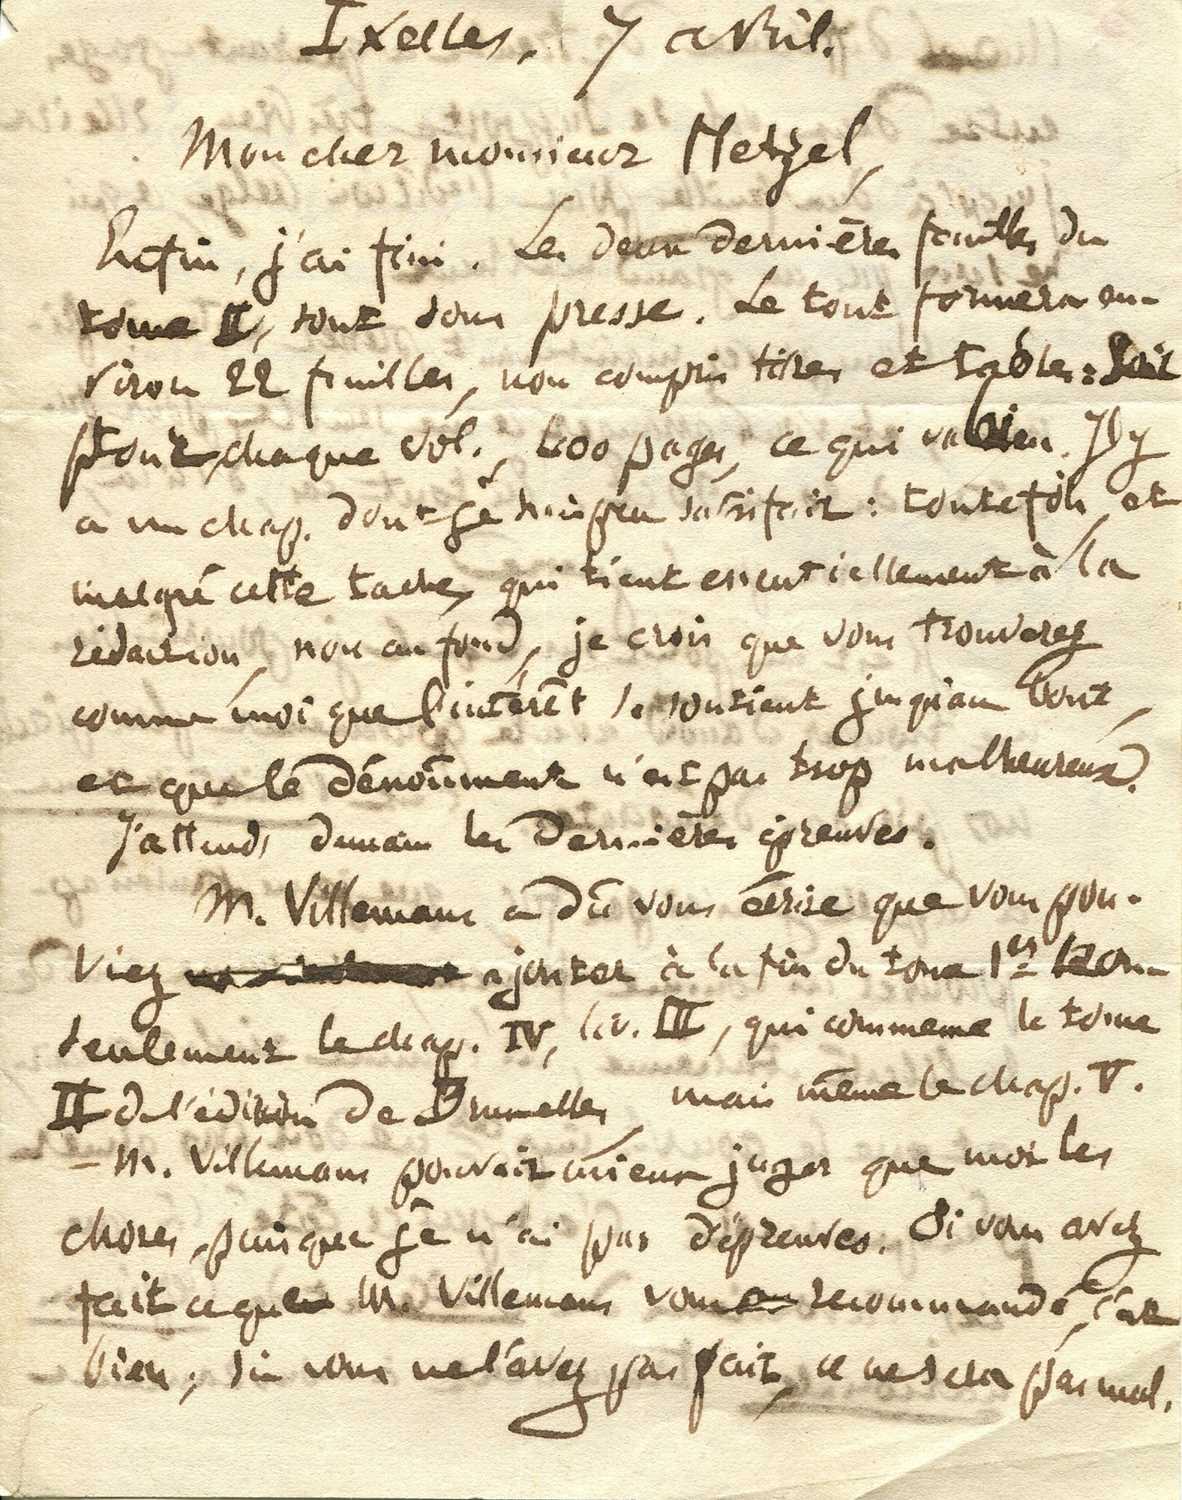 Ixelles, 7 avril.
Mon cher monsieur Hetzel,
Enfin, j'ai fini. Les deux dernières feuilles du
tome II, sont sous presse. Le tout formera en-
viron 22 feuilles, non compris titres et tables: soit
pour chaque vol., 400 pages, ce qui va bien. Il y
a un chap. dont je suis peu satisfait: toutefois, et
malgré cette tache, qui tient essentiellement à la
rédaction, non au fond, je crois que vous trouverez
comme moi que l'intérêt se soutient jusqu'au bout,
et que le dénoûment n'est pas trop malheureux.
J'attends demain les dernières épreuves.
M. Villemans a dû vous écrire que vous pou-
viez ajouter à la fin du tome 1er non
seulement le chap. IV, liv. III, qui commence le tome
II de l'édition de Bruxelles, mais même le chap. V.
– M. Villemans pouvait mieux juger que moi les
choses, puisque je n'ai pas d'épreuves. Si vous avez
fait ce que M. Villemans vous a recommandé, c'est
bien; si vous ne l'avez pas fait, ce ne sera pas mal.